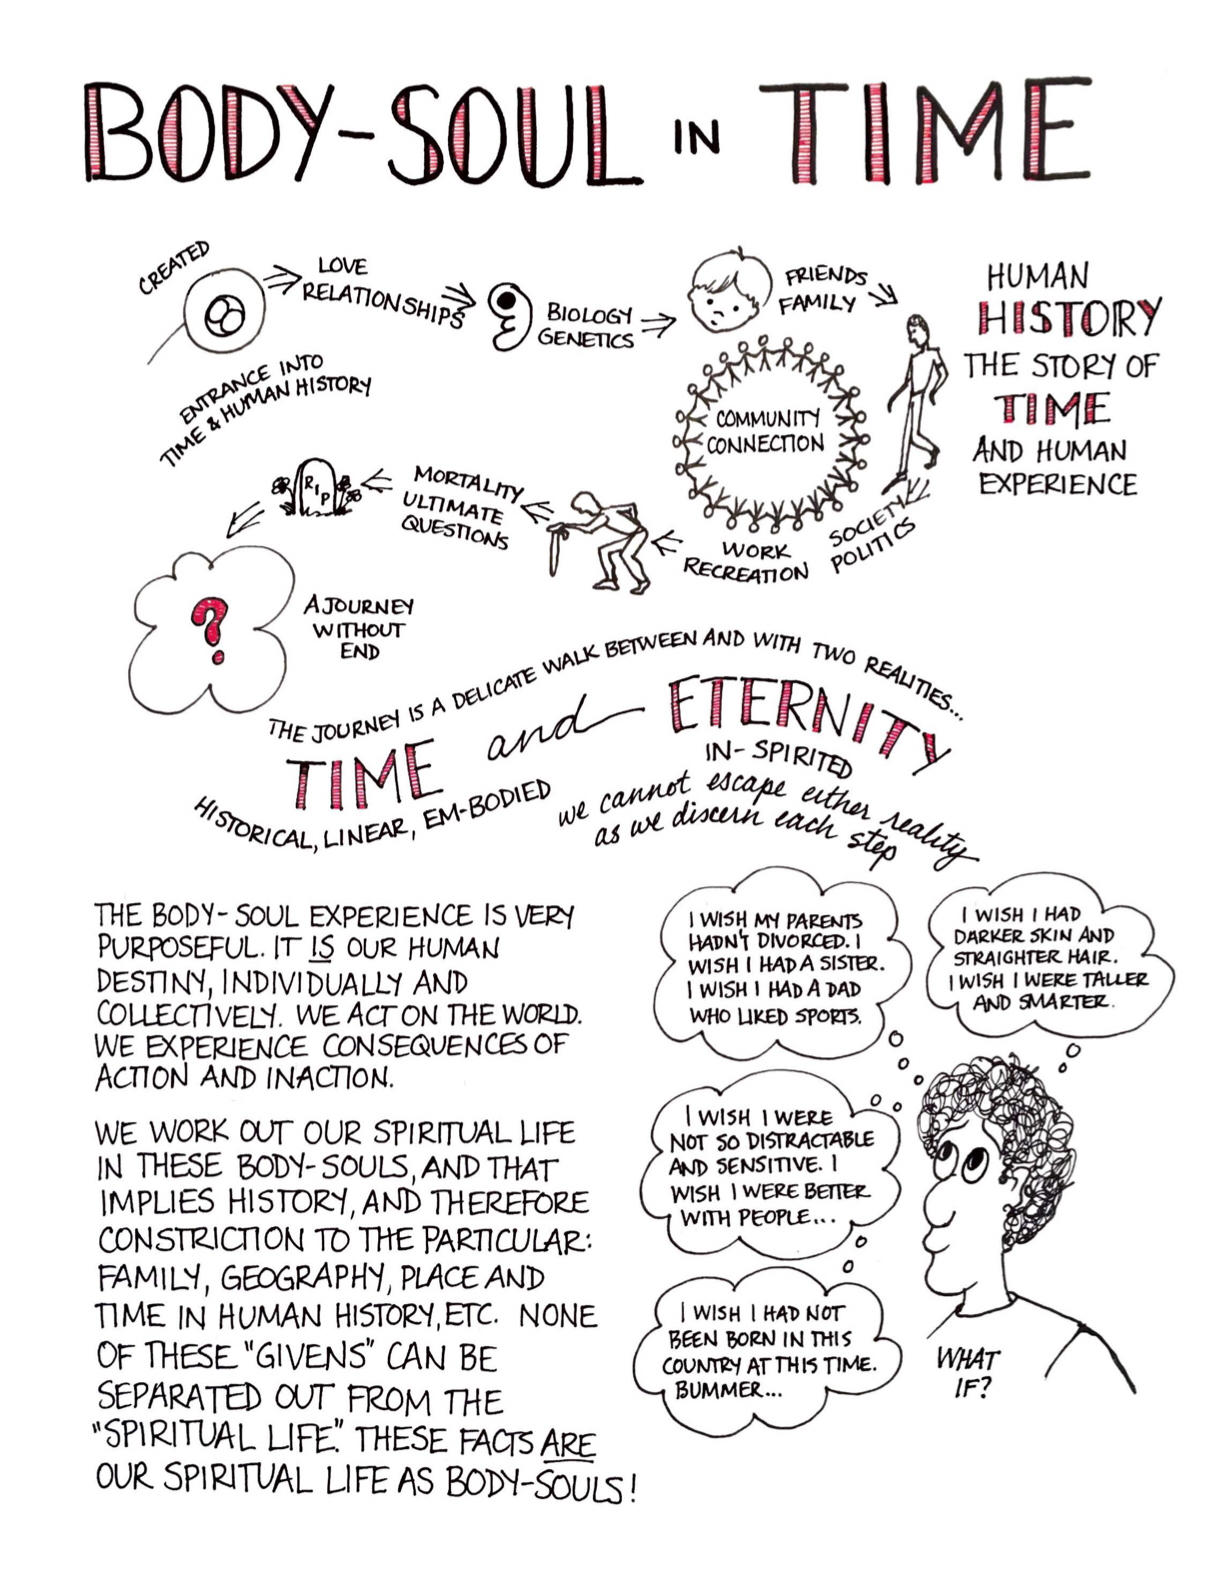 BODY-SOUL IN TIME
CREATED
ENTRANCE INTO
TIME & HUMAN HISTORY
LOVE
RELATIONSHIPS
BIOLOGY
GENETICS
FRIENDS
FAMILY
HUMAN
HISTORY
THE STORY OF
TIME
AND HUMAN
EXPERIENCE
COMMUNITY
CONNECTION
SOCIETY
POLITICS
WORK
RECREATION
MORTALITY
ULTIMATE
QUESTIONS
R.I.P
?
A JOURNEY
WITHOUT
END
THE JOURNEY IS A DELICATE WALK BETWEEN AND WITH TWO REALITIES...
TIME and ETERNITY
HISTORICAL, LINEAR, EM-BODIED
IN-SPIRITED
we cannot escape either reality
as we discern each step
THE BODY-SOUL EXPERIENCE IS VERY
PURPOSEFUL. IT IS OUR HUMAN
DESTINY, INDIVIDUALLY AND
COLLECTIVELY. WE ACT ON THE WORLD.
WE EXPERIENCE CONSEQUENCES OF
ACTION AND INACTION.
WE WORK OUT OUR SPIRITUAL LIFE
IN THESE BODY-SOULS, AND THAT
IMPLIES HISTORY, AND THEREFORE
CONSTRICTION TO THE PARTICULAR:
FAMILY, GEOGRAPHY, PLACE AND
TIME IN HUMAN HISTORY, ETC. NONE
OF THESE "GIVENS" CAN BE
SEPARATED OUT FROM THE
"SPIRITUAL LIFE." THESE FACTS ARE
OUR SPIRITUAL LIFE AS BODY-SOULS!
I WISH MY PARENTS
HADN'T DIVORCED. I
WISH I HAD A SISTER.
I WISH I HAD A DAD
WHO LIKED SPORTS.
I WISH I HAD
DARKER SKIN AND
STRAIGHTER HAIR.
I WISH I WERE TALLER
AND SMARTER.
I WISH I WERE
NOT SO DISTRACTABLE
AND SENSITIVE. I
WISH I WERE BETTER
WITH PEOPLE...
I WISH I HAD NOT
BEEN BORN IN THIS
COUNTRY AT THIS TIME.
BUMMER...
WHAT
IF?